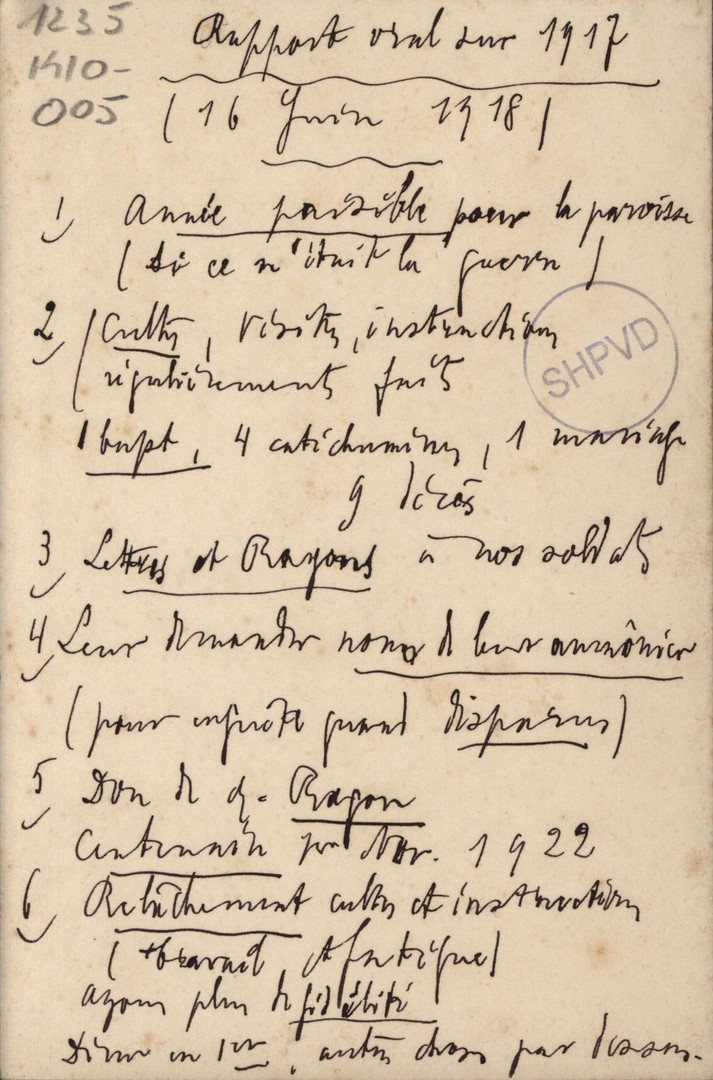 1235
1410-
005
Rapport oral sur 1917
(16 Juin 1918)
1) Année paisible pour la paroisse
(si ce n'était la guerre)
2) (Cultes, visites, instructions
régulièrement faits
SHPVD
1 bapt, 4 catéchumènes, 1 mariage
9 décès
3) Lettres et Rayons à nos soldats
4) Leur demander noms de leur aumônier
(pour enquête quand disparus)
5) Don de q. Rayon
Centenaire pr Nov. 1922
6) Relâchement cultes et instructions
(travail et fatigue)
ayons plus de fidélité
Dieu en 1er, autres choses par dessus.